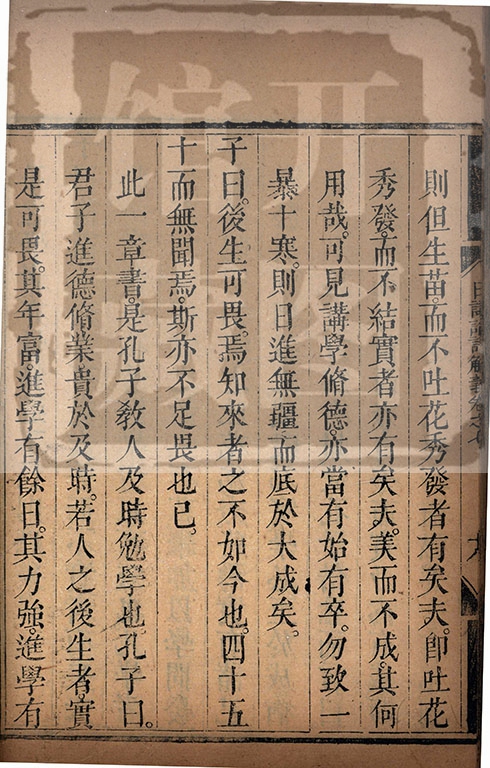 則但生苗。而不吐花秀發者有矣夫。卽吐花
秀發。而不結實者亦有矣夫。美而不成。其何
用哉。可見講學脩德。亦當有始有卒。勿致一
暴十寒。則日進無疆而底於大成矣。
子曰。後生可畏。焉知來者之不如今也。四十五
十而無聞焉。斯亦不足畏也已。
此一章書。是孔子教人及時勉學也。孔子曰。
君子進德脩業貴於及時。若人之後生者實
是可畏。其年富。進學有餘日。其力強。進學有